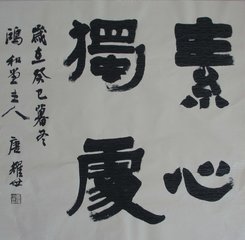 素心
獨處
歲在癸巳暮冬
鴻和堂主人 唐耀世